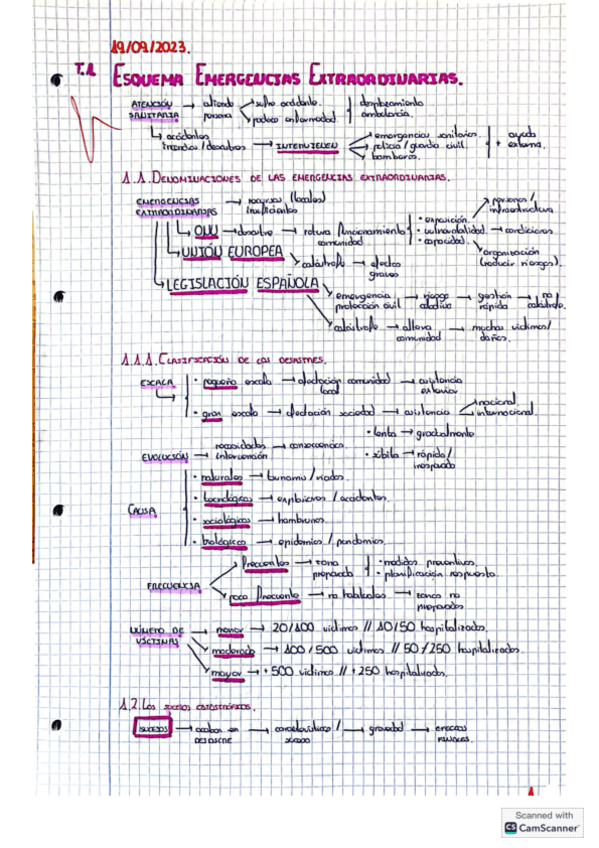 19/09/2023.
T.1 ESQUEMA EMERGENCIAS EXTRAORDINARIAS.
ATENCIÓN SANITARIA → atiende persona → sufre accidente. / padece enfermedad → desplazamiento ambulancia.
↳ accidentes incendios/desastres → INTERVIENEN → emergencias sanitarias. / policía / guardia civil. / bomberos. + ayuda externa.
1.1. DENOMINACIONES DE LAS EMERGENCIAS EXTRAORDINARIAS.
EMERGENCIAS EXTRAORDINARIAS → recursos (locales) insuficientes
ONU → desastre → rotura funcionamiento comunidad
• exposición. → personas / infraestructura
• vulnerabilidad. → condiciones
• capacidad. → organización (reducir riesgos).
UNIÓN EUROPEA → catástrofe → efectos graves
LEGISLACIÓN ESPAÑOLA
emergencia protección civil → riesgo colectivo → gestión rápida → no catástrofe.
catástrofe → altera comunidad → muchas víctimas/ daños.
1.1.1. CLASIFICACIÓN DE LOS DESASTRES.
ESCALA
• pequeña escala → afectación comunidad local → asistencia exterior
• gran escala → afectación sociedad → asistencia → nacional / internacional.
EVOLUCIÓN → necesidades intervención → consecuencias.
• lenta → gradualmente
• súbita → rápida / inesperada
CAUSA
• naturales → tsunamis / riadas.
• tecnológicos → explosivos / accidentes.
• sociológicos → hambrunas.
• biológicos → epidemias / pandemias.
FRECUENCIA
Frecuentes → zona preparada • medidas preventivas. • planificación respuesta.
poco frecuente → no habituales → zonas no preparadas
NÚMERO DE VÍCTIMAS
menor → 20/100 víctimas // 10/50 hospitalizados.
moderado → 100/500 víctimas // 50/250 hospitalizados.
mayor → +500 víctimas // +250 hospitalizados.
1.2. Los sucesos catastróficos.
SUCESOS → acaban en DESASTRE → características / → gravedad →
1
Scanned with
CS CamScanner